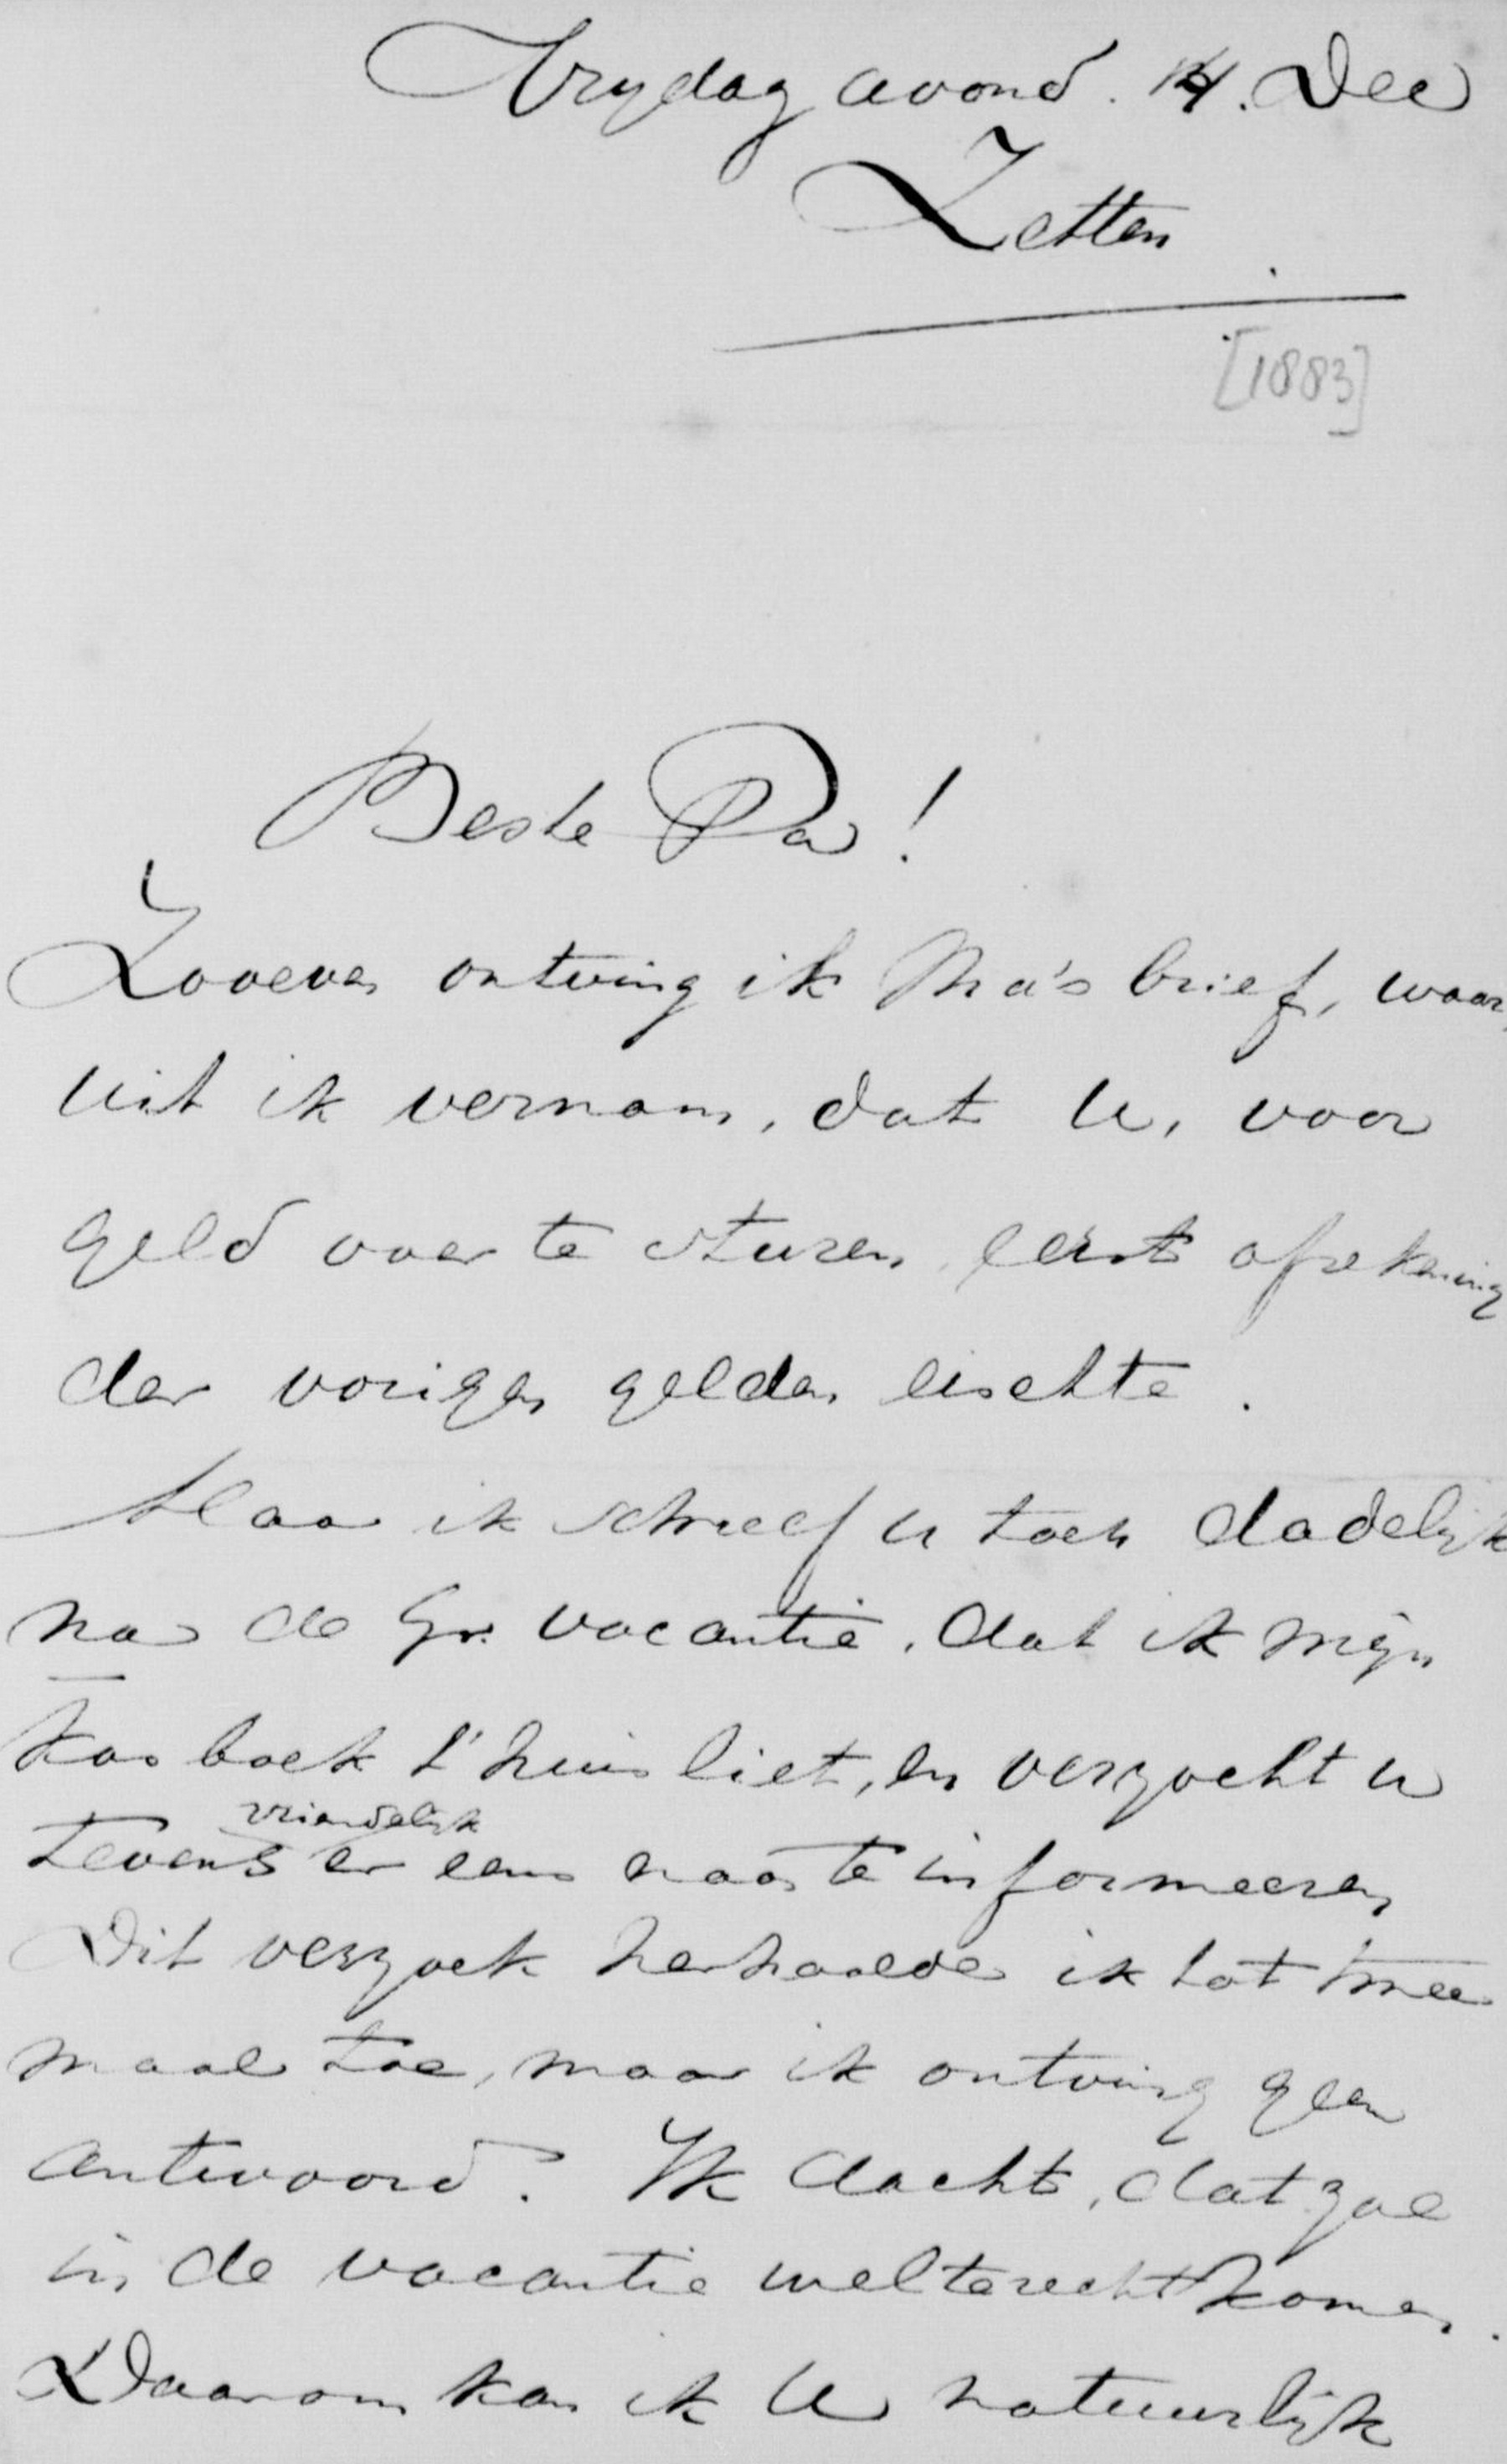 Vrydag avond. 14. Dec
Zetten
[1883]
Beste Pa!
Zooeven ontving ik Ma's brief, waar
uit ik vernam, dat U, voor
geld over te sturen, eerst afrekening
der vorigen gelden eischte.
Maar ik schreef u toch dadelijk
na de Gr. vacantie, dat ik mijn
kasboek t'huis liet, en verzocht u
tevens vriendelijk er eens naar te informeeren
Dit verzoek herhaalde ik tot twee
maal toe, maar ik ontving geen
antwoord. Ik dacht, dat zal
in de vacantie wel terecht komen.
Daarom kan ik U natuurlijk